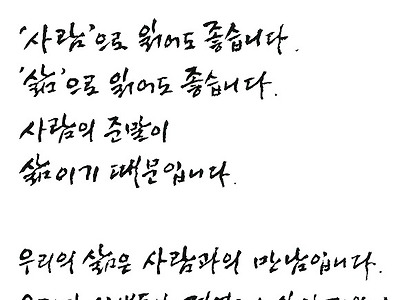 '사람'으로 읽어도 좋습니다.
'삶'으로 읽어도 좋습니다.
사람의 준말이
삶이기 때문입니다.
우리의 삶은 사람과의 만남입니다.